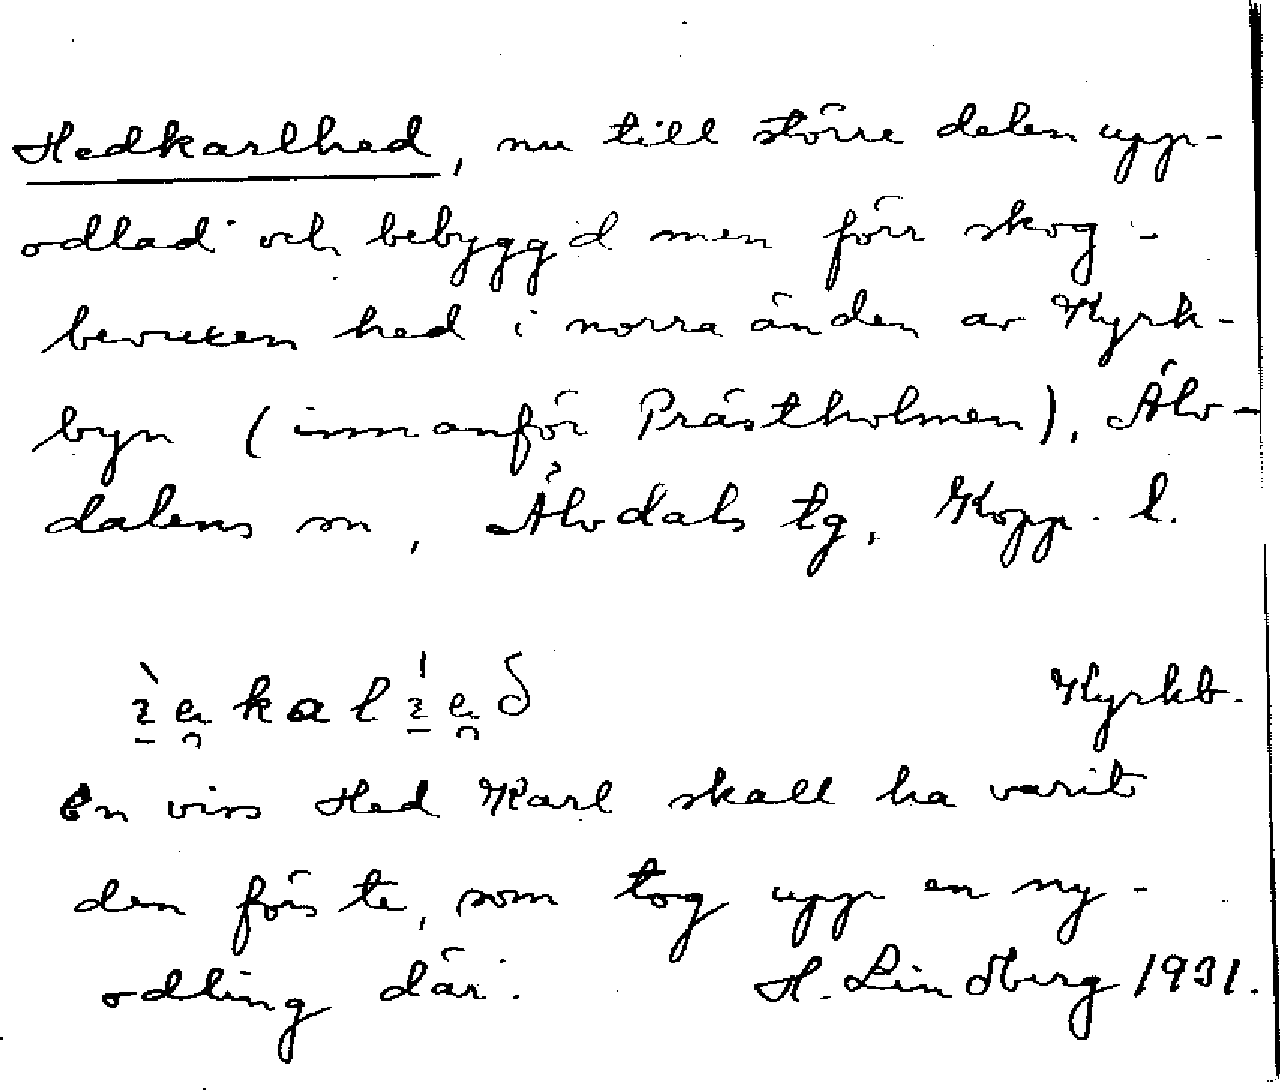 Hedkarlhed, nu till större delen upp-
odlad och bebyggd men förr skog-
bevuxen hed i norra änden av Kyrk-
byn (innanför Prästholmen), Älv-
dalens sn, Älvdals tg, Kopp. l.
Kyrkb.
En viss Hed Karl skall ha varit
den förste, som tog upp en ny-
odling där. H. Lindberg 1931.